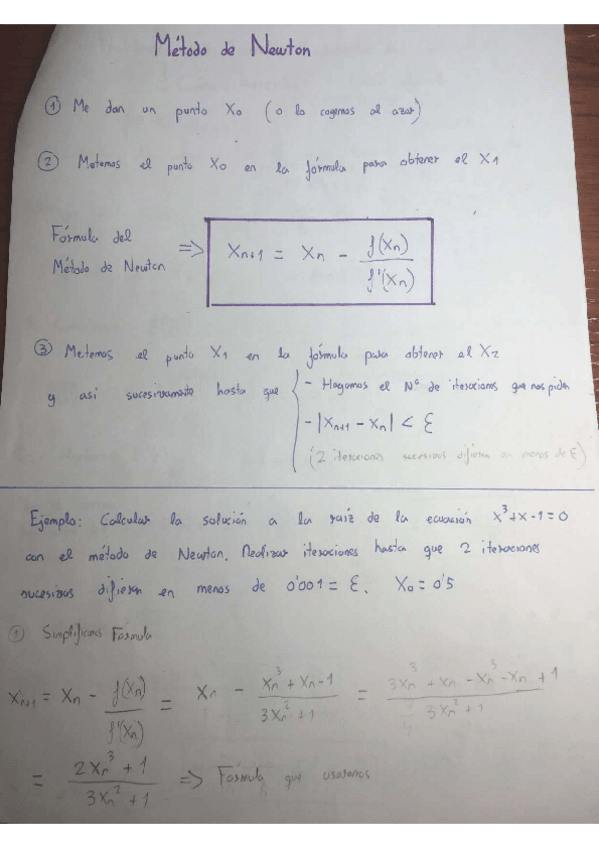 Método de Newton
① Me dan un punto X₀ (o lo cogemos al azar)
② Metemos el punto X₀ en la fórmula para obtener el X₁
Fórmula del
Método de Newton ⇒ Xₙ₊₁ = Xₙ - f(Xₙ) / f'(Xₙ)
③ Metemos el punto X₁ en la fórmula para obtener el X₂
y así sucesivamente hasta que { - Hagamos el Nº de iteraciones que nos piden
- |Xₙ₊₁ - Xₙ| < Ɛ
(2 iteraciones sucesivas difieran en menos de Ɛ)
Ejemplo: Calcular la solución a la raíz de la ecuación x³+x-1=0
con el método de Newton. Realizar iteraciones hasta que 2 iteraciones
sucesivas difieran en menos de 0'001 = Ɛ. X₀ = 0'5
① Simplificamos Fórmula
Xₙ₊₁ = Xₙ - f(Xₙ) / f'(Xₙ) = Xₙ - (Xₙ³ + Xₙ - 1) / (3Xₙ² + 1) = (3Xₙ³ + Xₙ - Xₙ³ - Xₙ + 1) / (3Xₙ² + 1)
= (2Xₙ³ + 1) / (3Xₙ² + 1) ⇒ Fórmula que usaremos